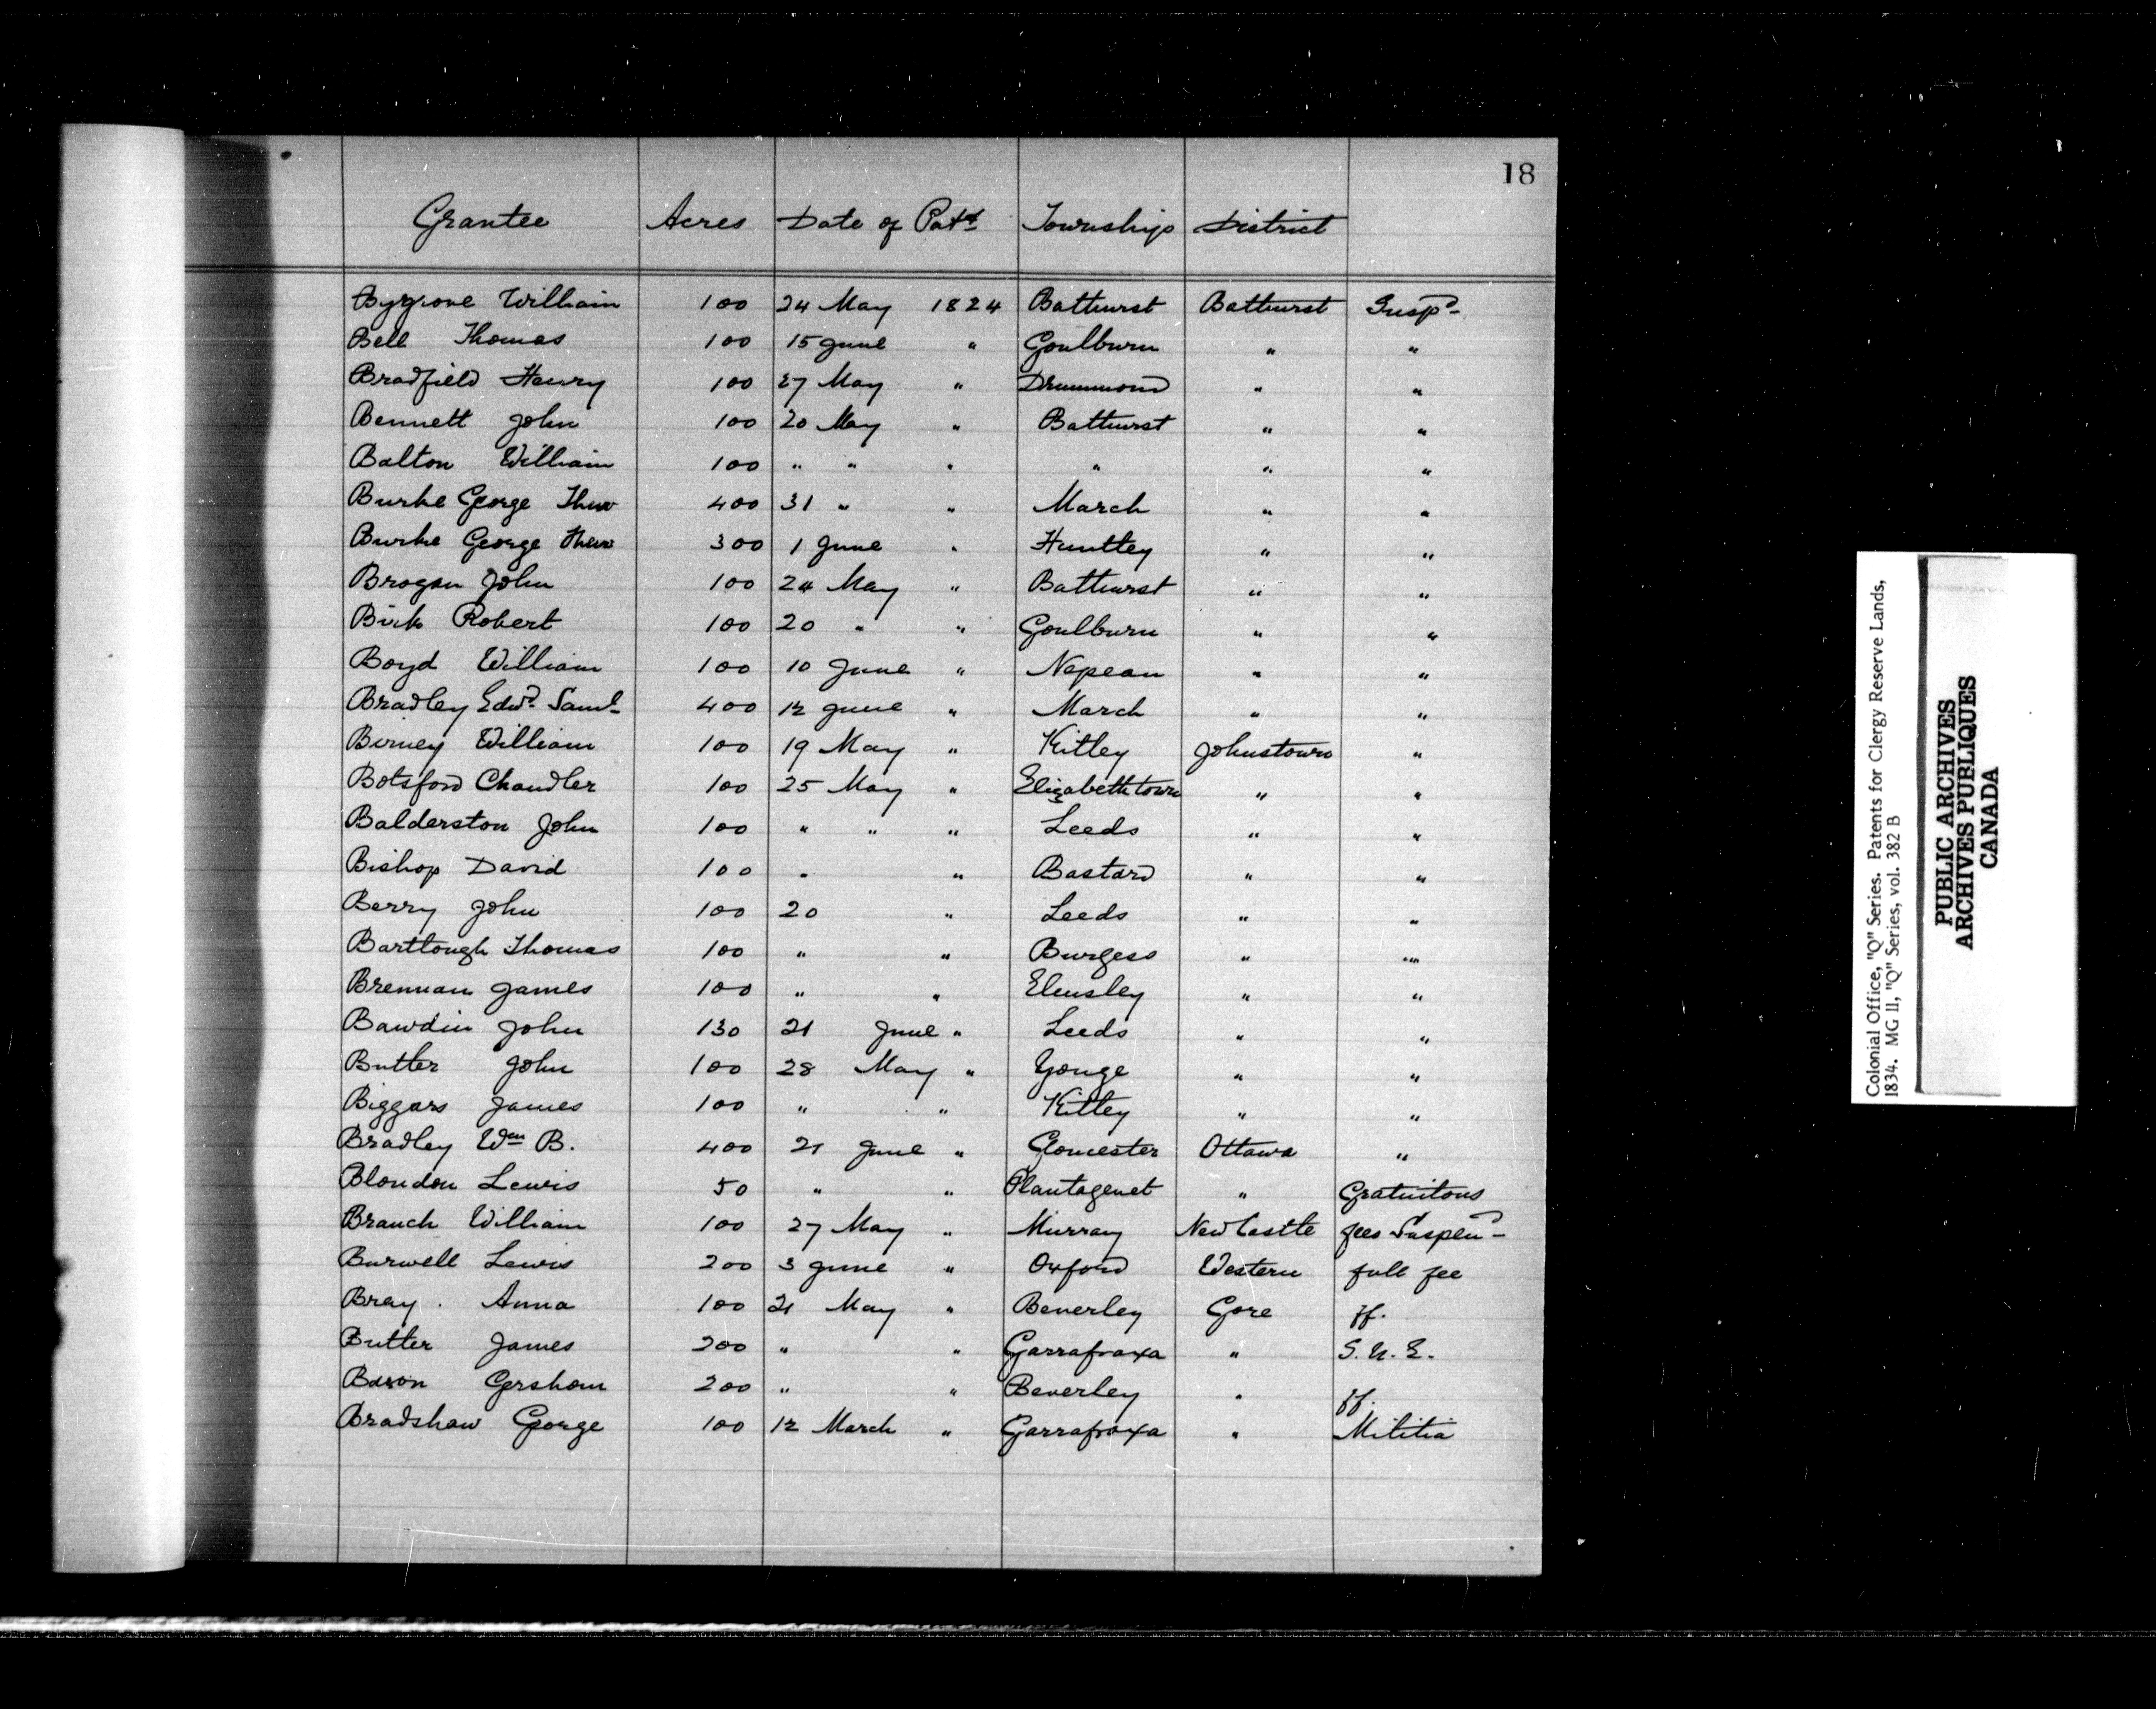 18
Grantee Acres Date of Patt Township District
Bygrove William 100 24 May 1824 Bathurst Bathurst Susp^d
Bell Thomas 100 15 June " Goulburn " "
Bradfield Henry 100 27 May " Drummond " "
Bennett John 100 20 May " Bathurst " "
Balton William 100 " " " " " "
Burke George Thew 400 31 " " March " "
Burke George Thew 300 1 June " Huntley " "
Brogan John 100 24 May " Bathurst " "
Birk Robert 100 20 " " Goulburn " "
Boyd William 100 10 June " Nepean " "
Bradley Edw^d Saml 400 12 June " March " "
Birney William 100 19 May " Kitley Johnstown "
Botsford Chandler 100 25 May " Elizabethtown " "
Balderston John 100 " " " Leeds " "
Bishop David 100 " " Bastard " "
Berry John 100 20 " Leeds " "
Bartlough Thomas 100 " " Burgess " "
Brennan James 100 " " Elmsley " "
Bawdin John 130 21 June " Leeds " "
Butler John 100 28 May " Yonge " "
Biggars James 100 " " Kitley " "
Bradley W^m B. 400 21 June " Gloucester Ottawa "
Blondon Lewis 50 " " Plantagenet " Gratuitous
Branch William 100 27 May " Murray NewCastle fees Suspen^d
Burwell Lewis 200 3 June " Oxford Western full fee
Bray. Anna 100 21 May " Beverley Gore ff.
Butter James 200 " " Garrafraxa " S.U.E.
Gershom 200 " " Beverley " ff.
Bradshaw George 100 12 March " Garrafraxa " Militia
Colonial Office, "Q" Series. Patents for Clergy Reserve Lands,
1834. MG 11, "Q" Series, vol. 382 B
PUBLIC ARCHIVES
ARCHIVES PUBLIQUES
CANADA